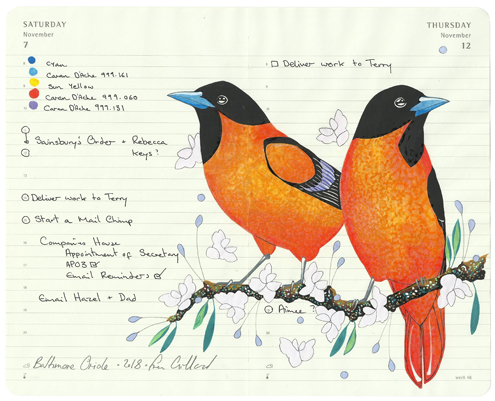 SATURDAY
November
7
Cyan
Caran D'Ache 999.161
Sun Yellow
Caran D'Ache 999.060
Caran D'Ache 999.131
Sainsbury's Order + Rebecca
Keys?
Deliver work to Terry
Start a Mail Chimp
Companies House
Appointment of Secretary
AP03
Email Reminders
Email Hazel + Dad
Baltimore Oriole - 2018 -
THURSDAY
November
12
Deliver work to Terry
Aimee
week 46